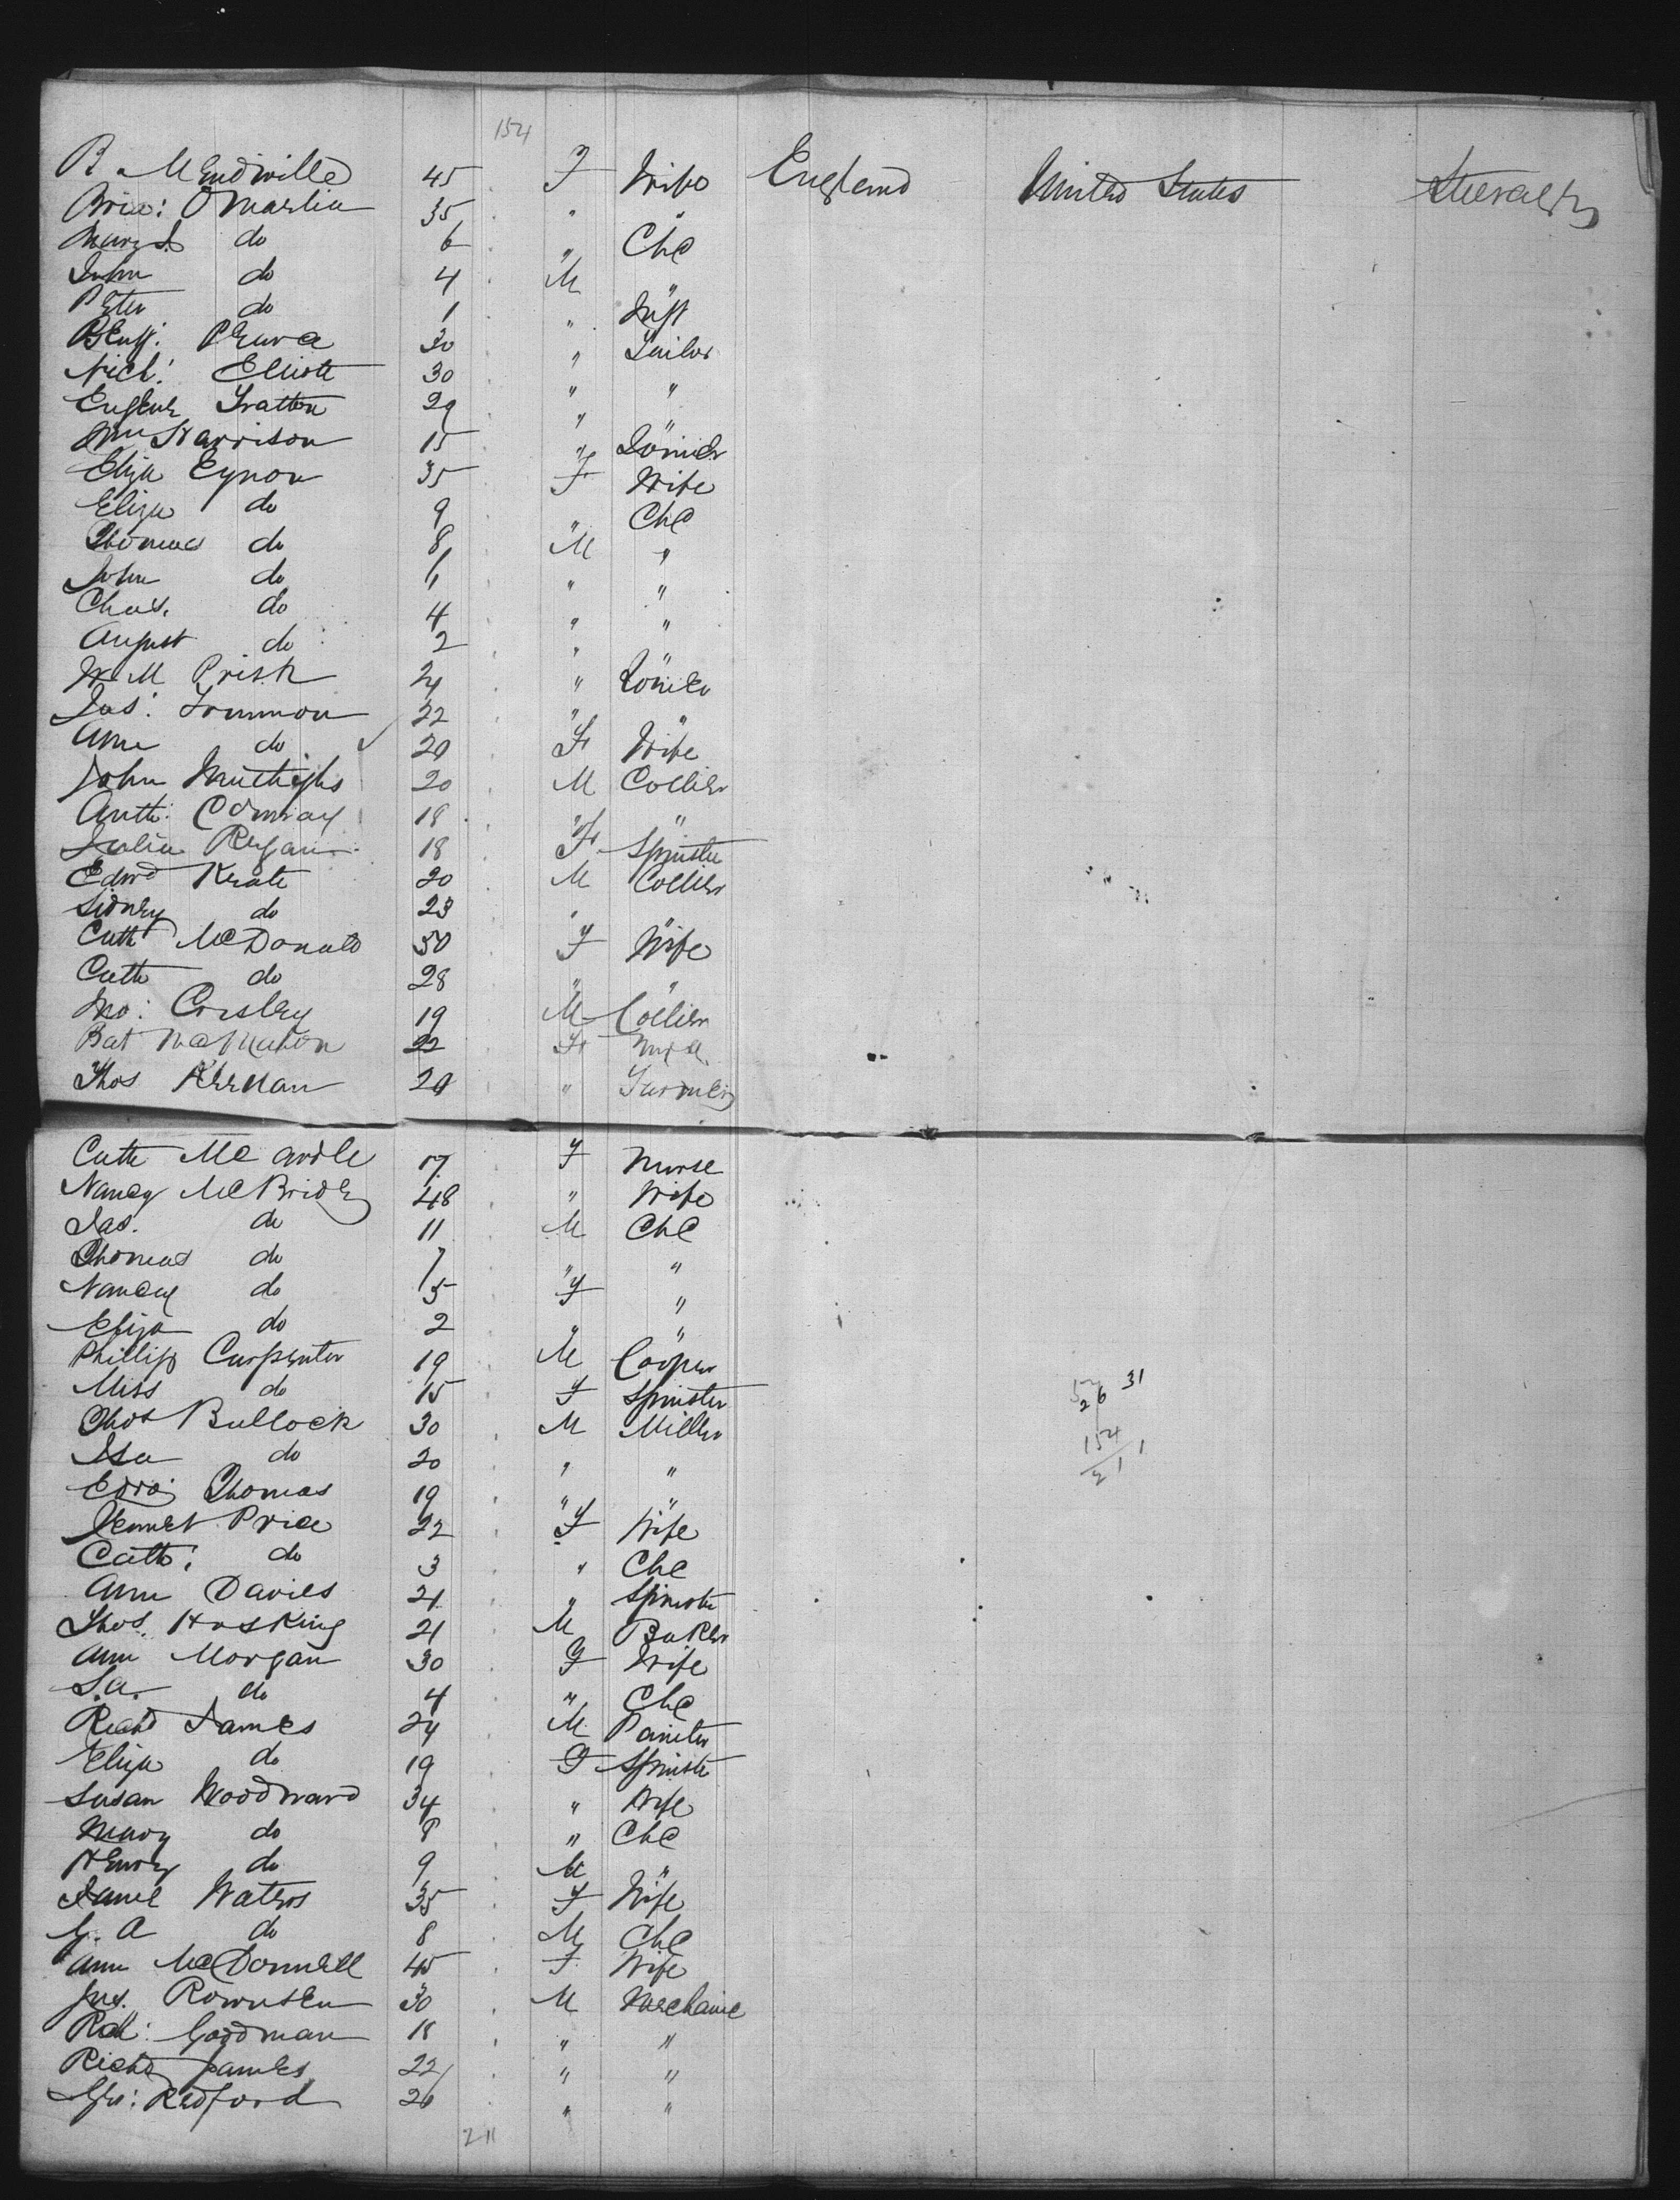 154
R. Mendville 45 F Wife England United States Steerage
Brid: OMarlia 35 " "
Margt do 6 " Chd
John do 4 M "
Peter do 1 " Inft
Benj: Pearce 30 " Tailor
Nichl: Elliott 30 " "
Eugene Tratten 29 "
Wm Harrison 15 " Joiner
Eliza Eynon 35 F Wife
Eliza do 9 " Chd
Thomas do 8 M "
John do 6 " "
Chas. do 4 " "
August do 2 "
W M Prisk 24 " Joiner
Jas: Trummon 22 " "
Ann do 20 F Wife
John Mutheghs 20 M Collier
Anth: Conway 18 " "
Julia Regan 18 F Spinster
Edwd Keate 20 M Collier
Sidney do 23 "
Cath McDonald 50 F Wife
Cath do 28 " "
Jno: Corsley 19 M Collier
Bat McMahon 22 F Nurse
Thos Keenan 20 " Farmer
Cath McArdle 17 F Nurse
Nancy McBride 48 " Wife
Jas. do 11 M Chd
Thomas do 7 " "
Nancy do 5 F "
Eliza do 2 " "
Phillip Carpenter 19 M Cooper
Miss do 15 F Spinster
26 31
Thos Bullock 30 M Miller
154
Isa do 20 " "
211
Edwd Thomas 19 " "
Jennet Price 22 F Wife
Cath: do 3 " Chd
Ann Davies 21 " Spinster
Thos. Hosking 21 M Baker
Ann Morgan 30 F Wife
S.A. do 4 " Chd
Richd James 24 M Painter
Eliza do 19 F Spinster
Susan Woodward 34 " Wife
Mary do 8 " Chd
Henry do 9 M "
Jane Waters 35 F Wife
G. A do 8 M Chd
Ann McDonnell 45 F Wife
Jas. Rownsley 30 M Mechanic
Rd: Goodman 18 " "
Richd James 22 " "
Geo: Redford 20 " "
211